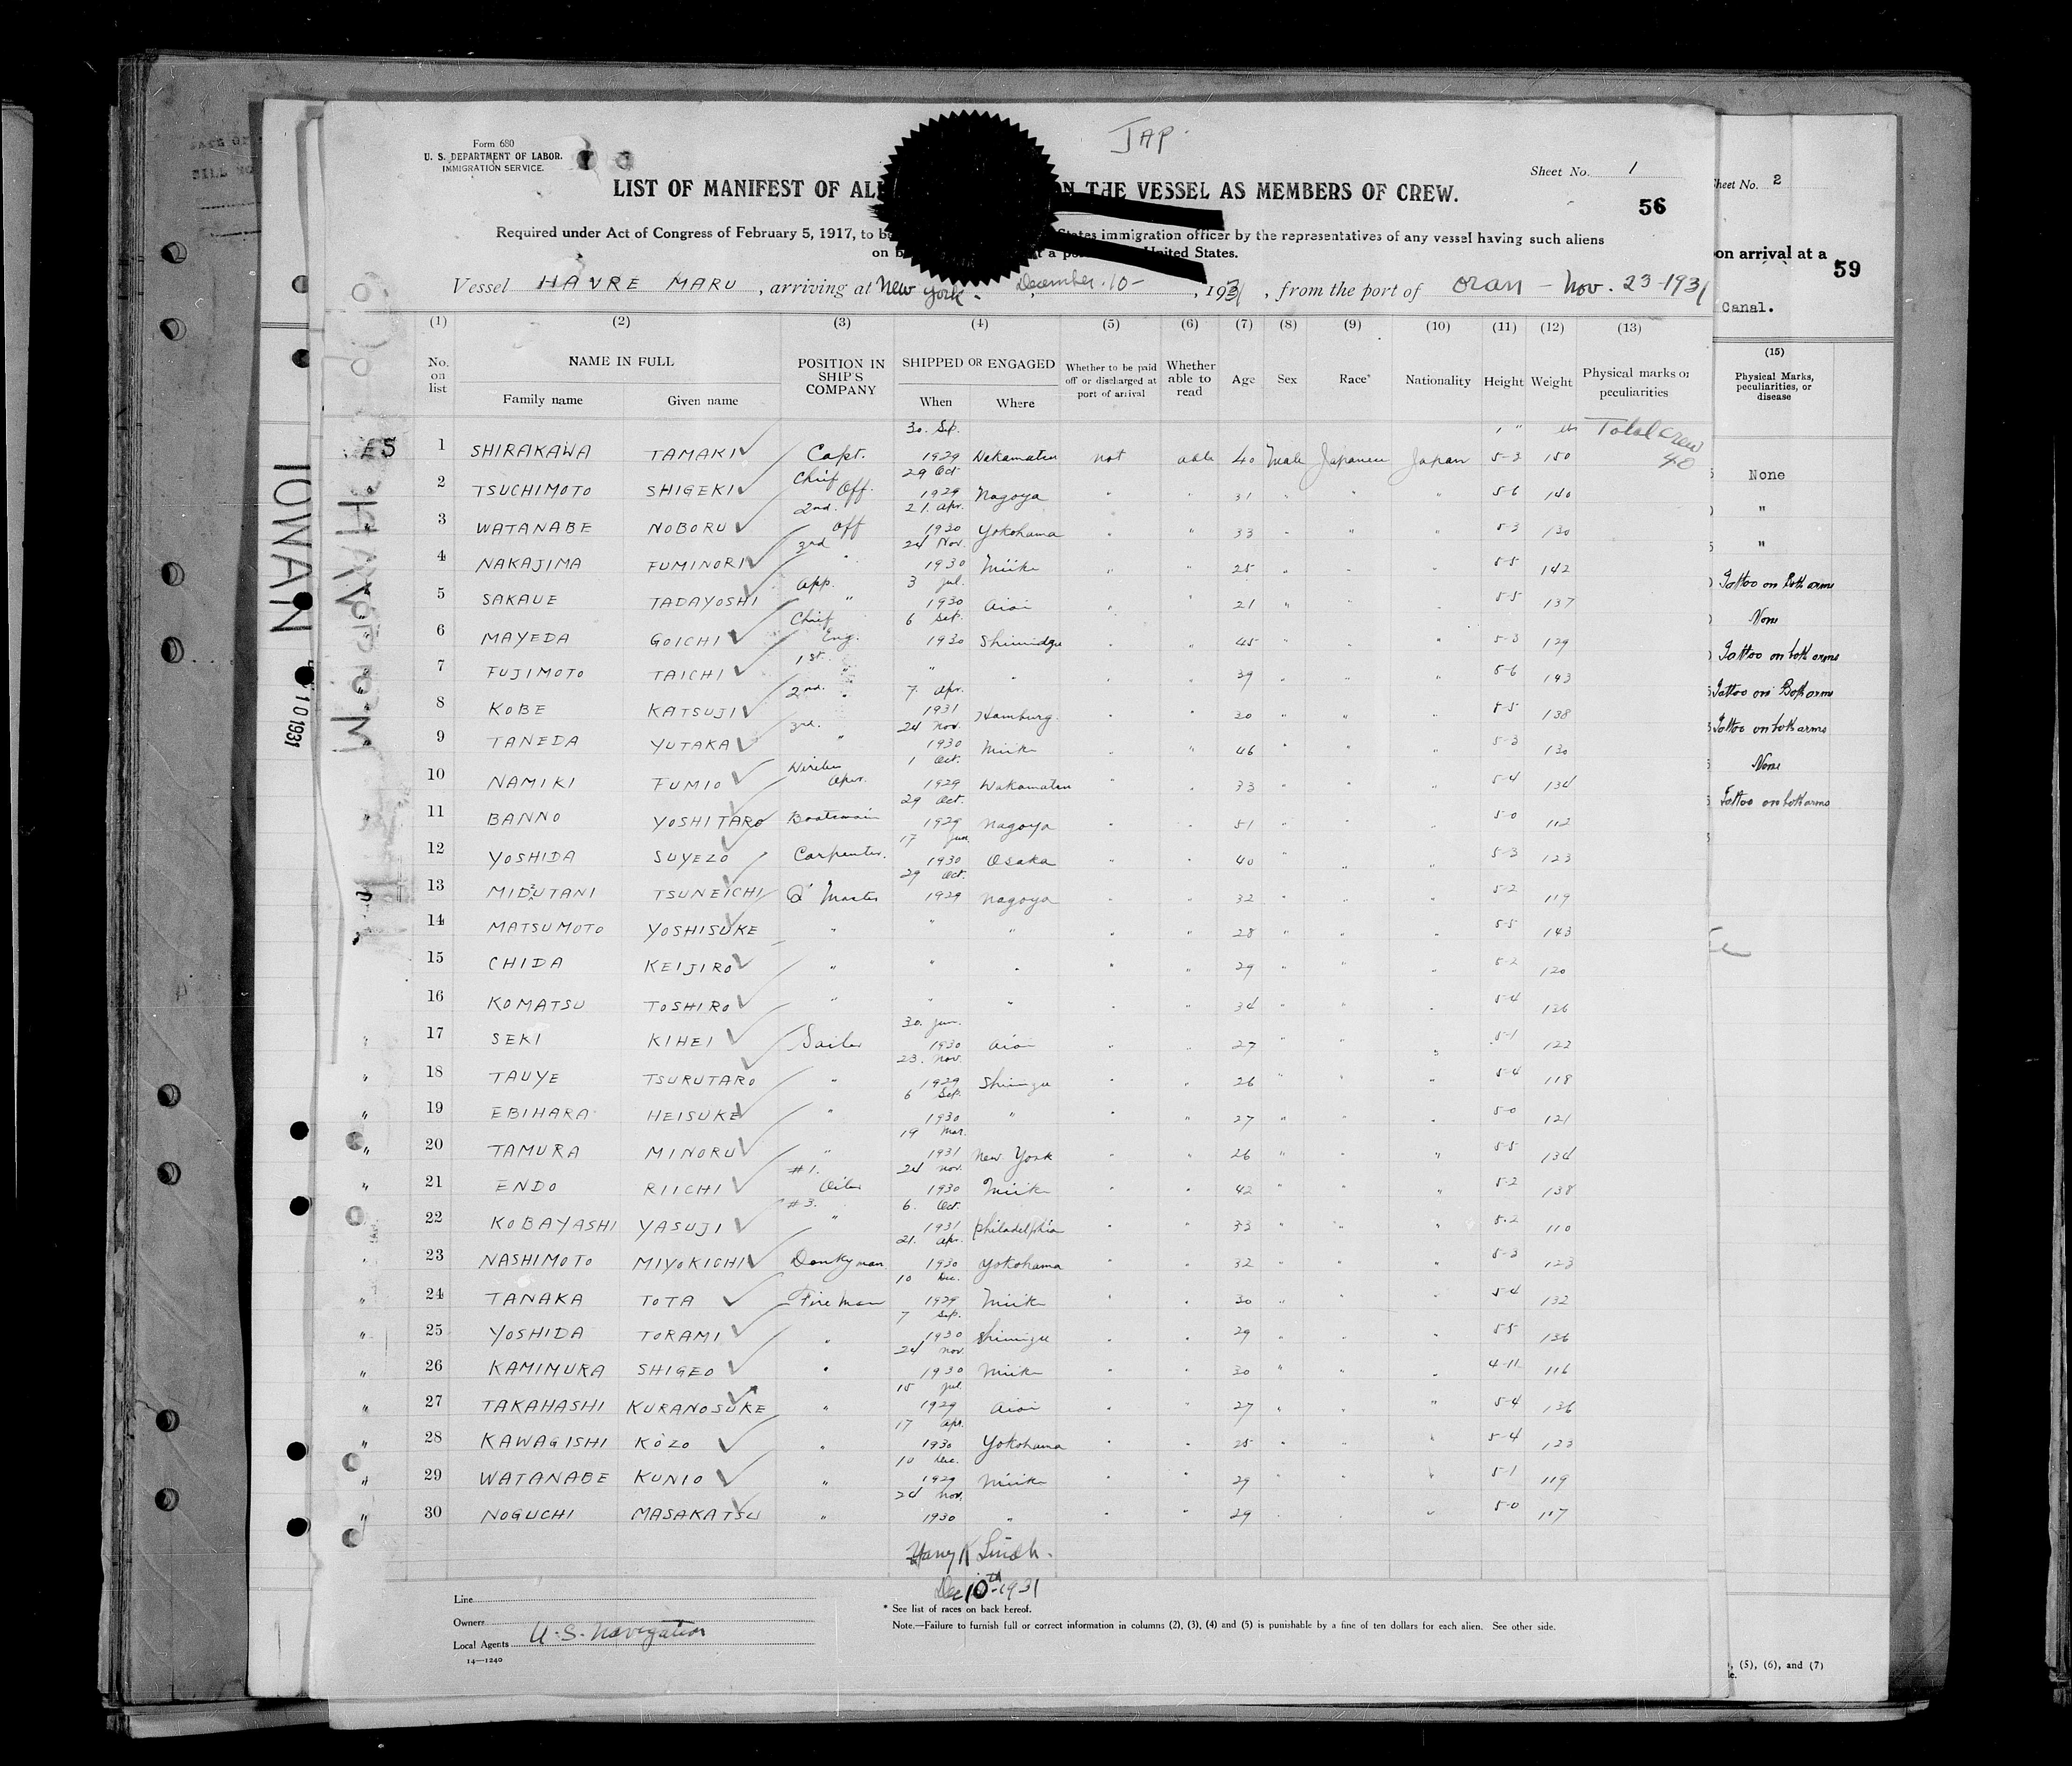 Form 680
U. S. DEPARTMENT OF LABOR.
IMMIGRATION SERVICE.
JAP.
Sheet No. 1
LIST OF MANIFEST OF ALI N THE VESSEL AS MEMBERS OF CREW.
56
Required under Act of Congress of February 5, 1917, to be States immigration officer by the representatives of any vessel having such aliens
on b t a po United States.
Vessel HAVRE MARU, arriving at New York. December 10 -, 1931, from the port of Oran - Nov. 23-1931
(1) (2) (3) (4) (5) (6) (7) (8) (9) (10) (11) (12) (13)
No. on list NAME IN FULL Family name Given name POSITION IN SHIP'S COMPANY SHIPPED OR ENGAGED When Where Whether to be paid off or discharged at port of arrival Whether able to read Age Sex Race* Nationality Height Weight Physical marks or peculiarities
Total crew 40
£5 1 SHIRAKAWA TAMAKI Capt. 30. Sep. 1929 Wakamatsu not able 40 Male Japanese Japan 5-3 150
2 TSUCHIMOTO SHIGEKI Chief Off. 29 Oct 1929 Nagoya " " 31 " " " 5-6 140
3 WATANABE NOBORU 2nd. Off 21. Apr. 1930 Yokohama " " 33 " " " 5-3 130
4 NAKAJIMA FUMINORI 3rd " 24 Nov. 1930 Miike " " 25 " " " 5-5 142
5 SAKAUE TADAYOSHI App. " 3 Jul. 1930 Aioi " " 21 " " " 5-5 137
6 MAYEDA GOICHI Chief Eng. 6 Set. 1930 Shimidzu " " 45 " " " 5-3 129
7 FUJIMOTO TAICHI 1st. " " " " " 39 " " " 5-6 143
8 KOBE KATSUJI 2nd. " 7. Apr. 1931 Hamburg. " " 30 " " " 5-5 138
9 TANEDA YUTAKA 3rd. " 24 Nov. 1930 Miike " " 46 " " " 5-3 130
10 NAMIKI FUMIO Wireless Oper. 1 Oct. 1929 Wakamatsu " " 33 " " " 5-4 134
11 BANNO YOSHITARO Boatswain 29 Oct. 1929 Nagoya " " 51 " " " 5-0 112
12 YOSHIDA SUYEZO Carpenter. 17 Jun. 1930 Osaka " " 40 " " " 5-3 123
13 MIDZUTANI TSUNEICHI Q' Master 29 Oct. 1929 Nagoya " " 32 " " " 5-2 119
14 MATSUMOTO YOSHISUKE " " " " " 28 " " " 5-5 143
15 CHIDA KEIJIRO " " " " " 29 " " " 5-2 120
16 KOMATSU TOSHIRO " " " " " 34 " " " 5-4 126
17 SEKI KIHEI Sailor 30. Jun. 1930 Aioi " " 27 " " " 5-1 122
18 TAUYE TSURUTARO " 23. Nov. 1929 Shimizu " " 26 " " " 5-4 118
19 EBIHARA HEISUKE " 6 Sep. 1930 " " " 27 " " " 5-0 121
20 TAMURA MINORU " 19 Mar. 1931 New York " " 26 " " " 5-5 134
21 ENDO RIICHI #1. Oiler 24 Nov. 1930 Miike " " 42 " " " 5-2 138
22 KOBAYASHI YASUJI #3. " 6. Oct. 1931 Philadelphia " " 33 " " " 5-2 110
23 NASHIMOTO MIYOKICHI Donkyman 21. Apr. 1930 Yokohama " " 32 " " " 5-3 123
24 TANAKA TOTA Fireman 10 Dec. 1929 Miike " " 30 " " " 5-4 132
25 YOSHIDA TORAMI " 7 Sep. 1930 Shimizu " " 29 " " " 5-5 136
26 KAMIMURA SHIGEO " 24 Nov. 1930 Miike " " 30 " " " 4-11 116
27 TAKAHASHI KURANOSUKE " 15 Jul. 1929 Aioi " " 27 " " " 5-4 126
28 KAWAGISHI KOZO " 17 Apr. 1930 Yokohama " " 25 " " " 5-4 123
29 WATANABE KUNIO " 10 Dec. 1929 Miike " " 29 " " " 5-1 119
30 NOGUCHI MASAKATSU " 24 Nov. 1930 " " " 29 " " " 5-0 117
Harry K Lindh.
Dec 10th-1931
Line
Owners
Local Agents U.S. Navigation
14—1240
* See list of races on back hereof.
Note.—Failure to furnish full or correct information in columns (2), (3), (4) and (5) is punishable by a fine of ten dollars for each alien. See other side.
heet No. 2
on arrival at a
59
Canal.
(15)
Physical Marks, peculiarities, or disease
None
"
"
Tattoo on both arms
None
Tattoo on both arms
Tattoo on Both arms
Tattoo on both arms
None
Tattoo on both arms
, (5), (6), and (7)
IOWAN
10 1931